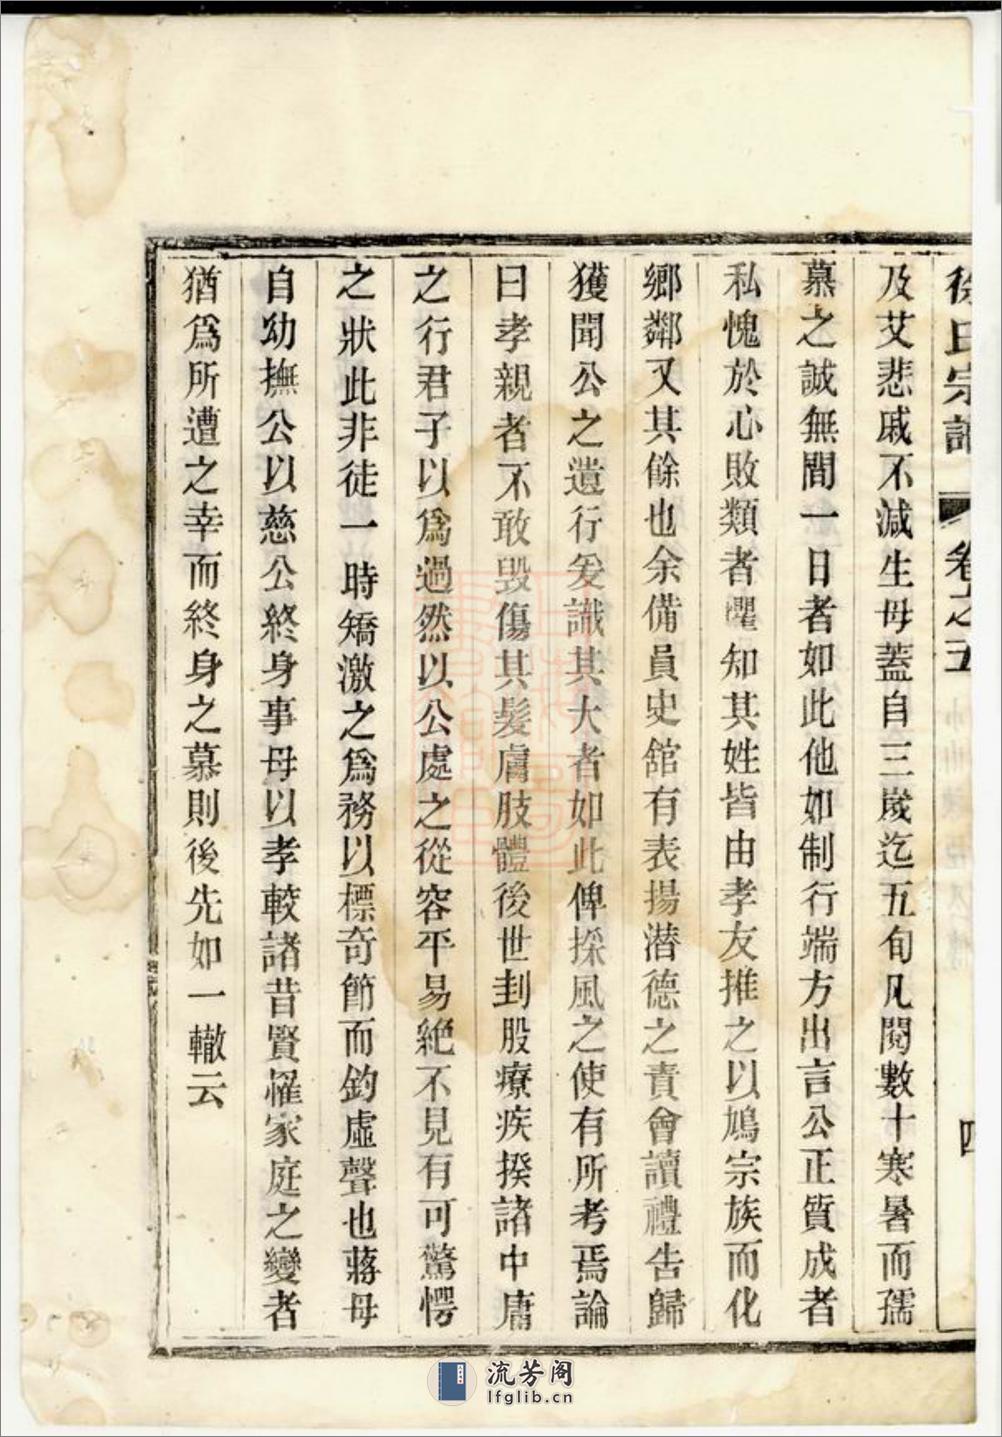 徐氏宗譜　卷之五　四
及艾悲戚不減生母蓋自三歲迄五旬凡閱數十寒暑而孺
慕之誠無間一日者如此他如制行端方出言公正質成者
私愧於心敗類者懼知其姓皆由孝友推之以鳩宗族而化
鄉鄰又其餘也余備員史舘有表揚潛德之責會讀禮告歸
獲聞公之遺行爰識其大者如此俾採風之使有所考焉論
曰孝親者不敢毀傷其髮膚肢體後世刲股療疾揆諸中庸
之行君子以爲過然以公處之從容平易絕不見有可驚愕
之狀此非徒一時矯激之爲務以標奇節而釣虛聲也蔣母
自幼撫公以慈公終身事母以孝較諸昔賢罹家庭之變者
猶爲所遭之幸而終身之慕則後先如一轍云
流芳阁
lfglib.cn